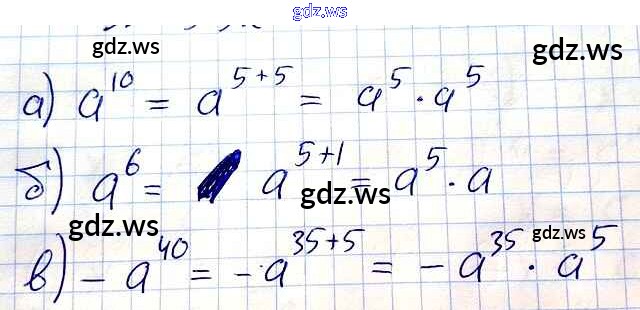 gdz.ws
gdz.ws gdz.ws
а) a¹⁰ = a⁵⁺⁵ = a⁵ · a⁵
б) a⁶ = a⁵⁺¹ = a⁵ · a
gdz.ws
gdz.ws gdz.ws
в) - a⁴⁰ = - a³⁵⁺⁵ = - a³⁵ · a⁵